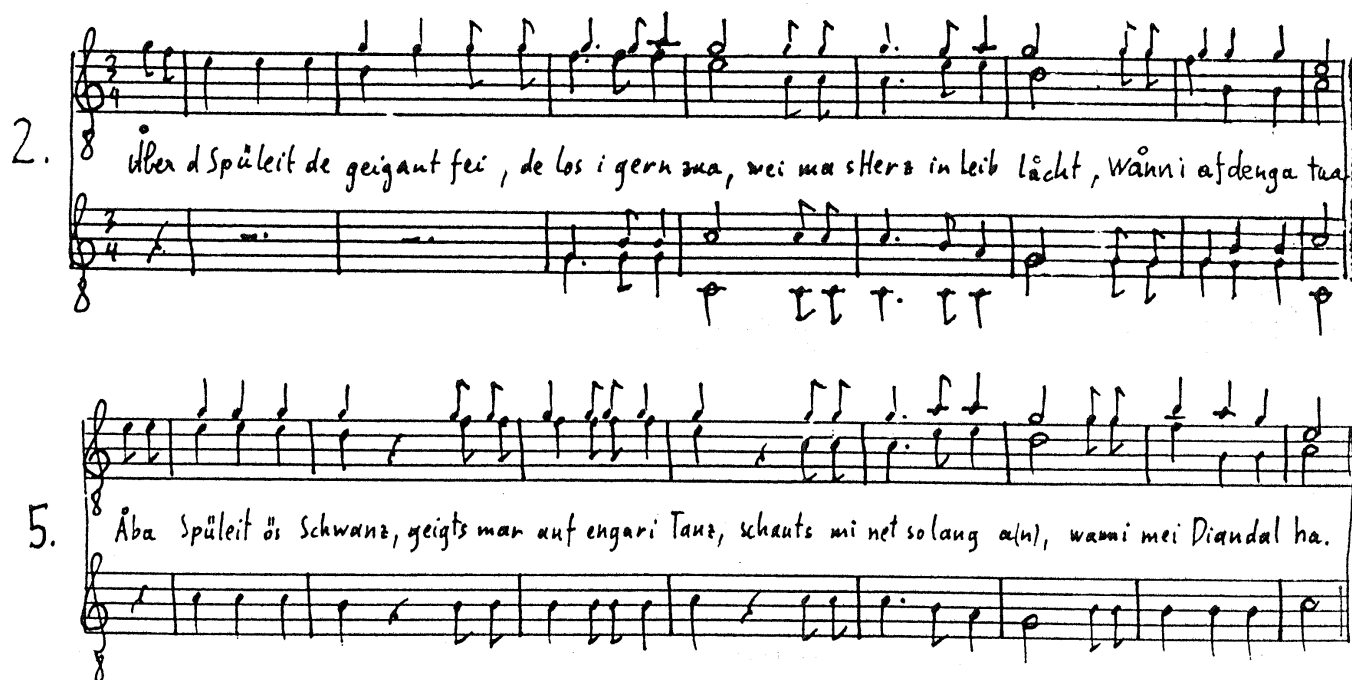 2. Åber d Spüleit de geigant fei, de los i gern zua, wei ma sHerz in Leib låcht, Wånn i af denga tua
5. Åba Spüleit ös Schwanz, geigts mar auf engari Tanz, schauts mi net so lang a(n), wann i mei Diandal ha.